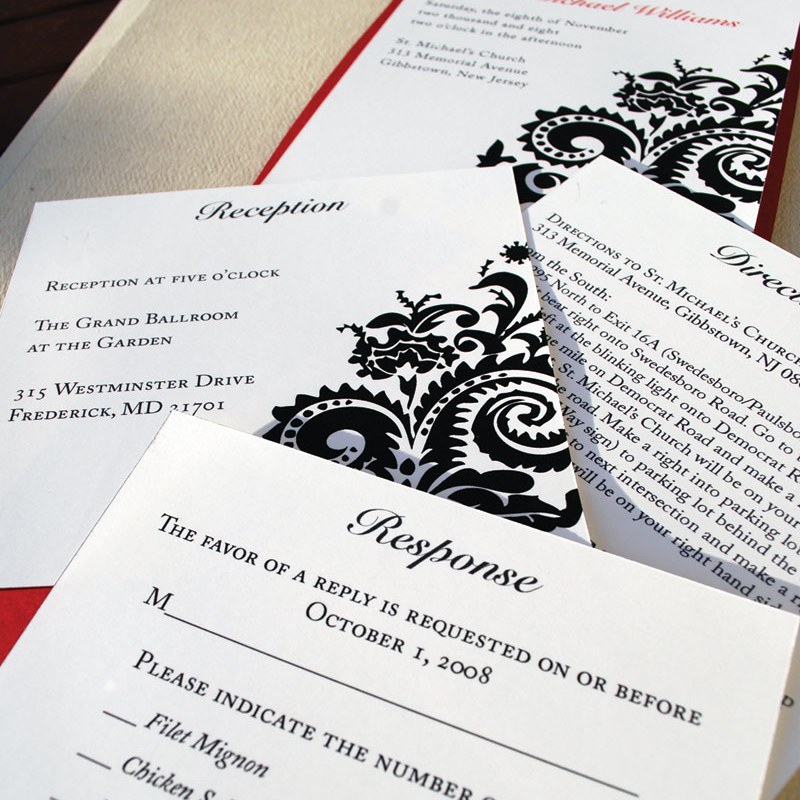 Michael Williams
Saturday, the eighth of November
two thousand and eight
two o'clock in the afternoon
St. Michael's Church
313 Memorial Avenue
Gibbstown, New Jersey
Reception
Reception at five o'clock
The Grand Ballroom
at the Garden
315 Westminster Drive
Frederick, MD 21701
Directions to St. Michael's Church
313 Memorial Avenue, Gibbstown, NJ 08
om the South:
295 North to Exit 16A (Swedesboro/Paulsbo
bear right onto Swedesboro Road. Go to
ft at the blinking light onto Democrat R
mile on Democrat Road and make a
St. Michael's Church will be on your
road. Make a right into parking lot
Way sign) to parking lot behind the
to next intersection and make a r
will be on your right hand sid
Response
The favor of a reply is requested on or before
October 1, 2008
M
Please indicate the number
Filet Mignon
Chicken